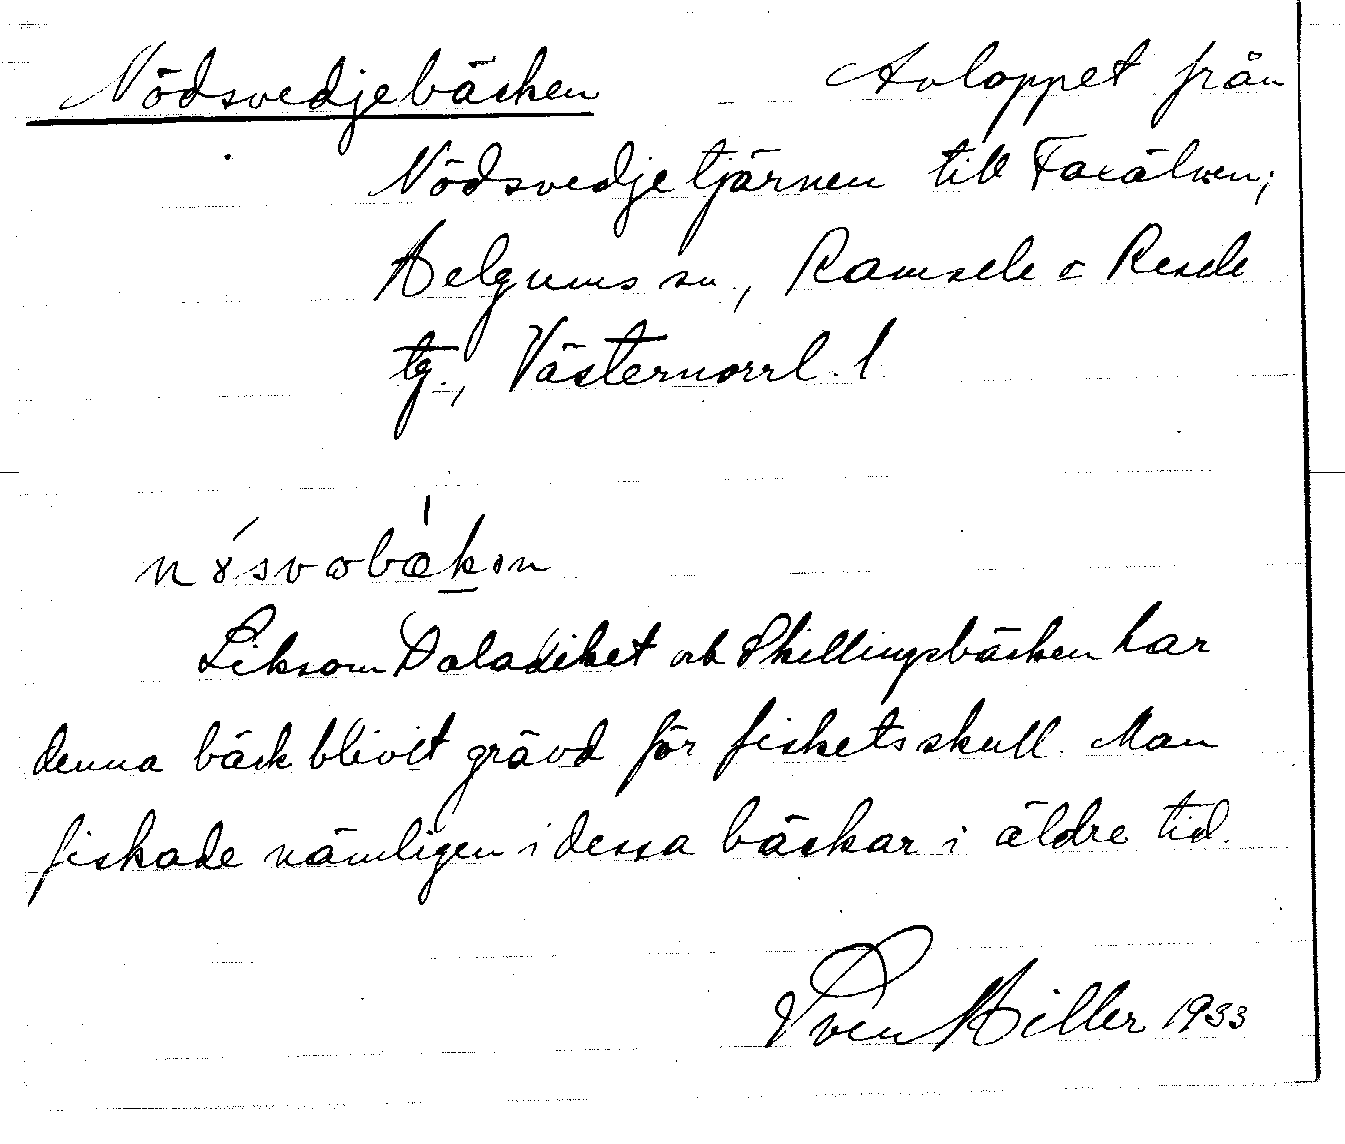 Nödsvedjebäcken Avloppet från
Nödsvedjetjärnen till Faxälven;
Helgums sn, Ramsele o Resele
tg., Västernorrl. l
nösvæbækən
Liksom Daladiket och Skillingsbäcken har
denna bäck blivit grävd för fiskets skull. Man
fiskade nämligen i dessa bäckar i äldre tid.
Sven Hiller 1933